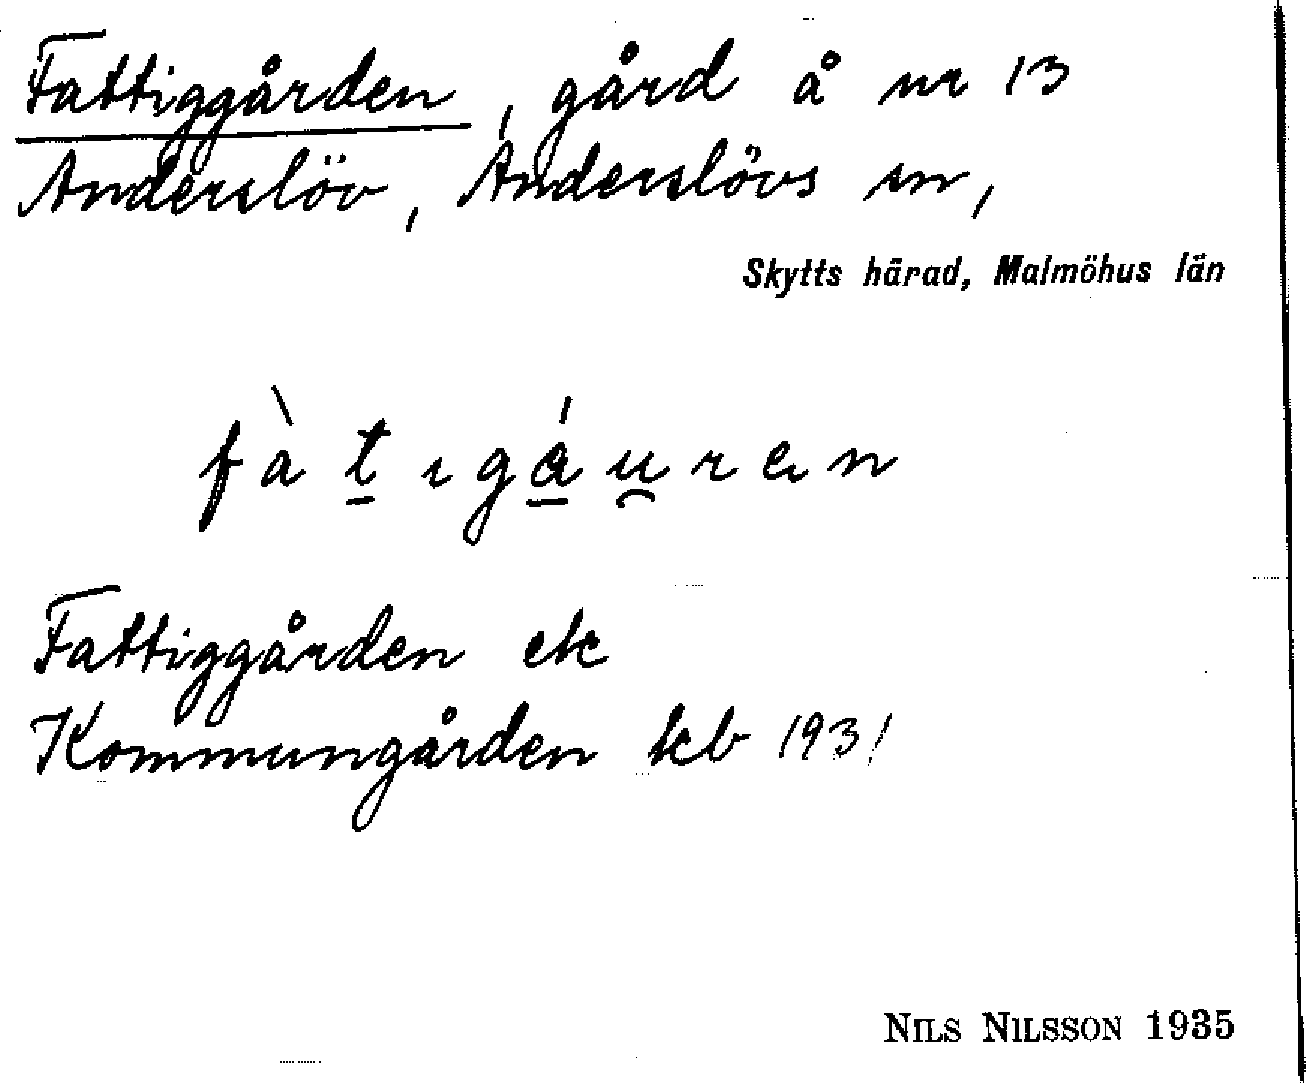 Fattiggården, gård å nr 13
Anderslöv, Anderslövs sn,
Skytts härad, Malmöhus län
fàtıgáu̯rɘn
Fattiggården ek
Kommungården kb 1931
NILS NILSSON 1935